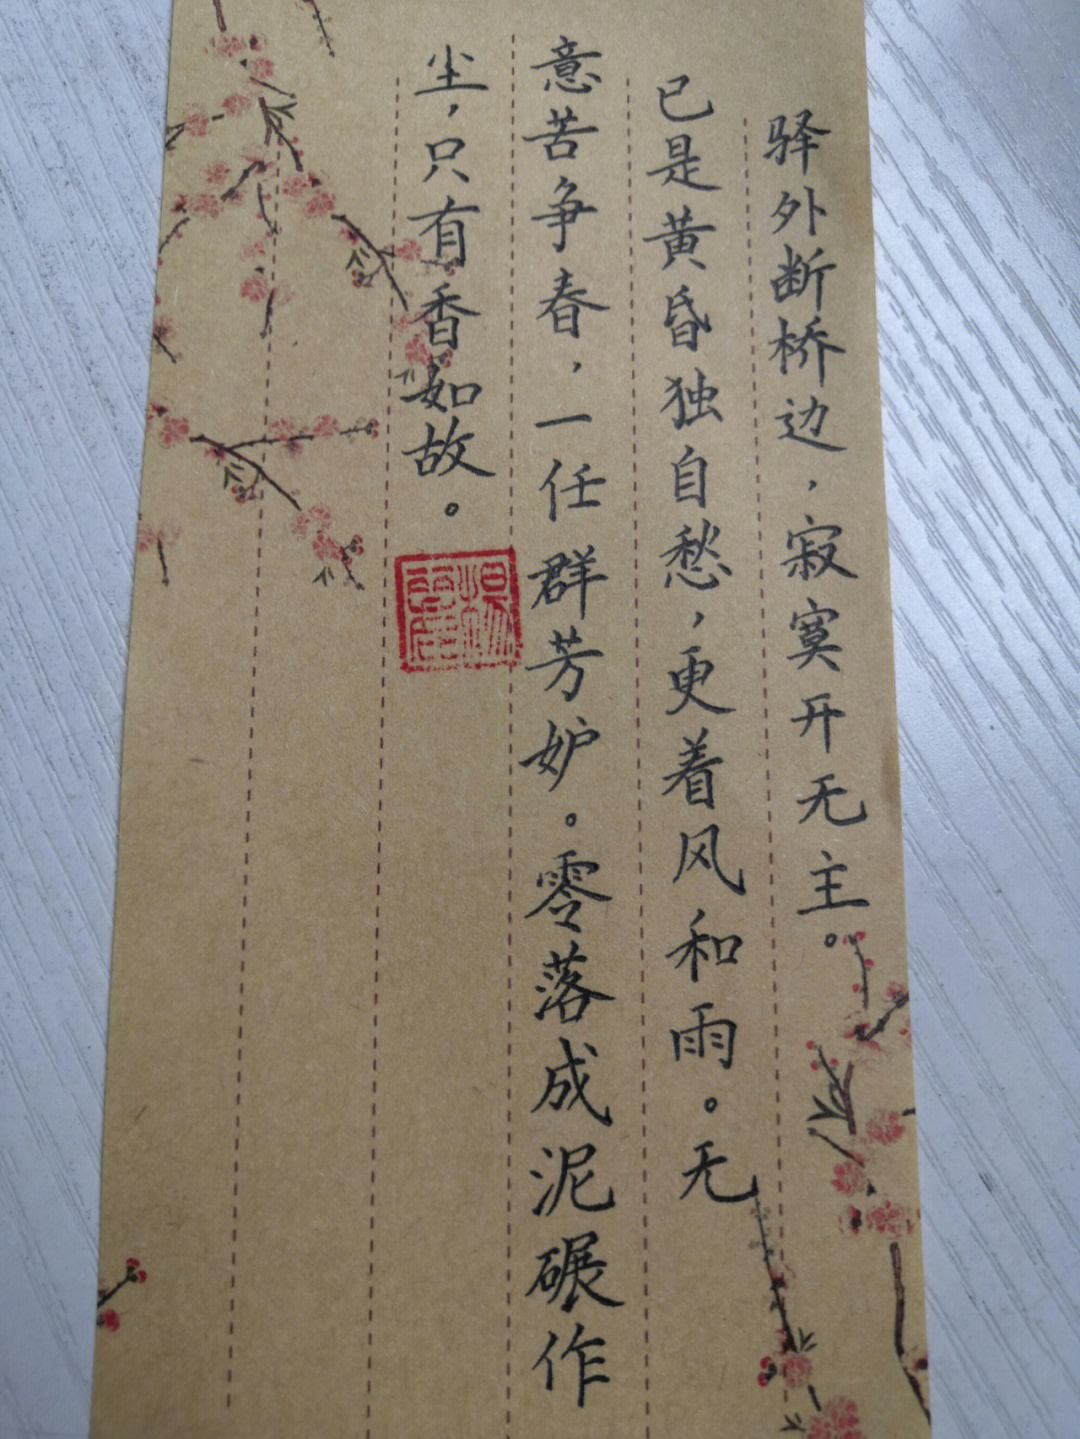 驿外断桥边，寂寞开无主。
已是黄昏独自愁，更着风和雨。无
意苦争春，一任群芳妒。零落成泥碾作
尘，只有香如故。